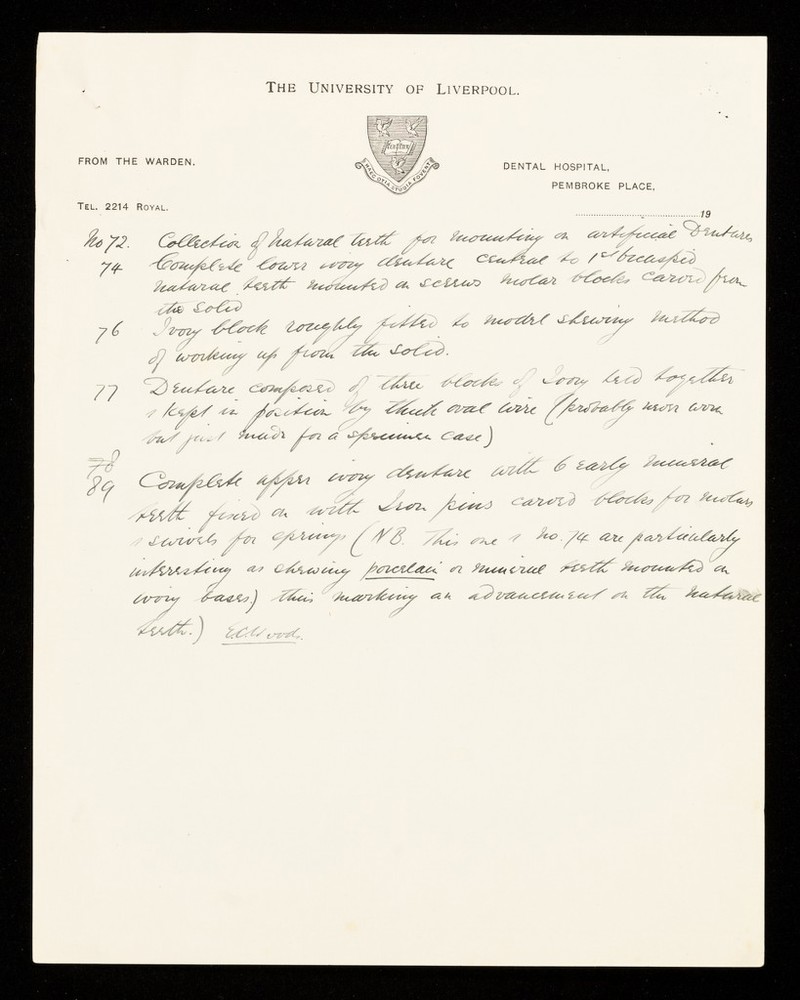 THE UNIVERSITY OF LIVERPOOL.
HAEC OTIA STUDIA FOVENT
FROM THE WARDEN.
DENTAL HOSPITAL,
PEMBROKE PLACE,
TEL. 2214 ROYAL.
19
No 72. Collection of natural teeth for mounting on artificial Dentures
74 Complete lower ivory denture central to 1st bicuspid
natural teeth mounted on screws molar blocks carved from
the solid
76 Ivory block roughly fitted to model shewing method
of working up from the solid.
77 Denture composed of three blocks of Ivory held together
& kept in position by thick oval wire (probably never worn
but just made for a specimen case)
78
89 Complete upper ivory denture with 6 early mineral
teeth fixed on with Iron pins carved blocks for molars
& swivels for springs (NB. This one & No. 74 are particularly
interesting as shewing porcelain or mineral teeth mounted on
ivory bases) thus marking an advancement on the natural
teeth.) E.C. Woods.